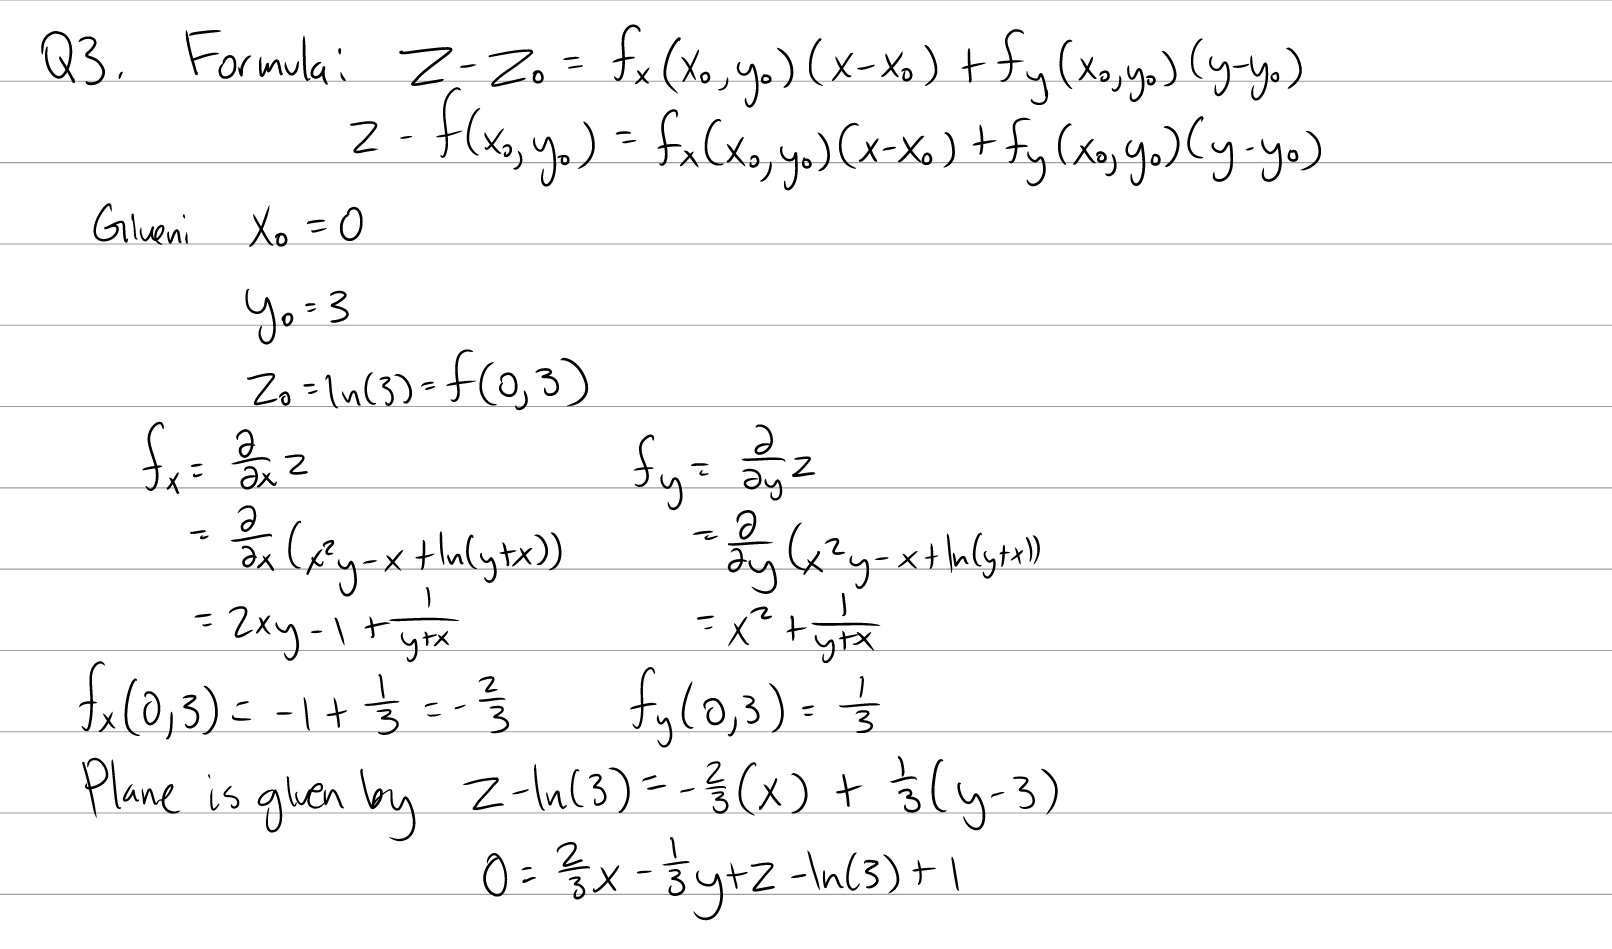 Q3. Formula: z - z₀ = fₓ(x₀,y₀)(x-x₀) + f_y(x₀,y₀)(y-y₀)
z - f(x₀,y₀) = fₓ(x₀,y₀)(x-x₀) + f_y(x₀,y₀)(y-y₀)
Given: x₀ = 0
y₀ = 3
z₀ = ln(3) = f(0,3)
fₓ = ∂/∂x z    f_y = ∂/∂y z
= ∂/∂x (x²y - x + ln(y+x))    = ∂/∂y (x²y - x + ln(y+x))
= 2xy - 1 + 1/(y+x)    = x² + 1/(y+x)
fₓ(0,3) = -1 + 1/3 = -2/3    f_y(0,3) = 1/3
Plane is given by z - ln(3) = -2/3(x) + 1/3(y-3)
0 = 2/3x - 1/3y + z - ln(3) + 1